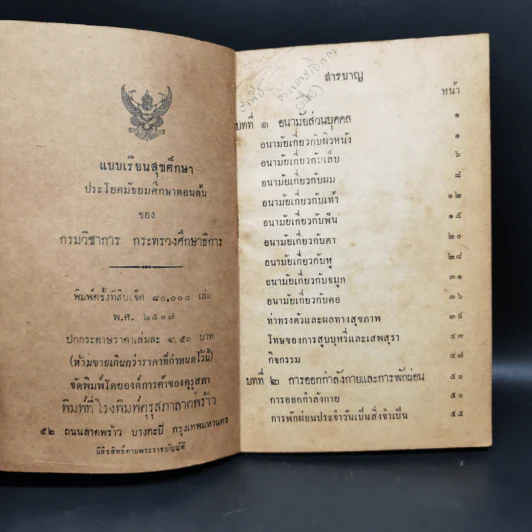 แบบเรียนสุขศึกษา
ประโยคมัธยมศึกษาตอนต้น
ของ
กรมวิชาการ กระทรวงศึกษาธิการ
พิมพ์ครั้งที่สิบเจ็ด ๘๐,๐๐๐ เล่ม
พ.ศ. ๒๕๑๗
ปกกระดาษราคาเล่มละ ๔.๕๐ บาท
(ห้ามขายเกินกว่าราคาที่กำหนดไว้นี้)
จัดพิมพ์โดยองค์การค้าของคุรุสภา
พิมพ์ที่โรงพิมพ์คุรุสภาลาดพร้าว
๕๒ ถนนลาดพร้าว บางกะปิ กรุงเทพมหานคร
มีลิขสิทธิ์ตามพระราชบัญญัติ
สารบาญ
หน้า
บทที่ ๑ อนามัยส่วนบุคคล ๑
อนามัยเกี่ยวกับผิวหนัง ๑
อนามัยเกี่ยวกับเล็บ ๖
อนามัยเกี่ยวกับผม ๘
อนามัยเกี่ยวกับเท้า ๑๒
อนามัยเกี่ยวกับฟัน ๑๕
อนามัยเกี่ยวกับตา ๒๐
อนามัยเกี่ยวกับหู ๒๘
อนามัยเกี่ยวกับจมูก ๓๑
อนามัยเกี่ยวกับคอ ๓๖
ท่าทรงตัวและผลทางสุขภาพ ๔๓
โทษของการสูบบุหรี่และเสพสุรา ๔๗
กิจกรรม ๔๘
บทที่ ๒ การออกกำลังกายและการพักผ่อน ๕๐
การออกกำลังกาย ๕๐
การพักผ่อนประจำวันเป็นสิ่งจำเป็น ๕๕